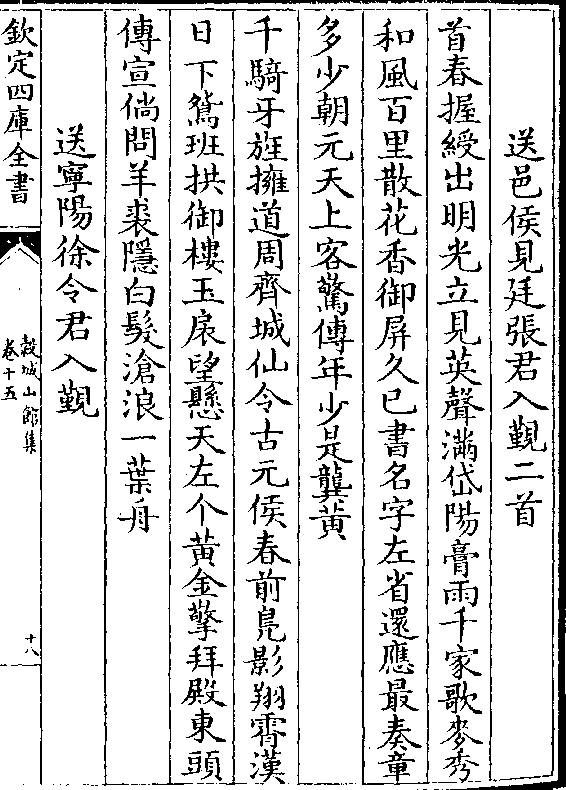 送邑侯見廷張君入覲二首
首春握綬出明光立見英聲滿岱陽膏雨千家歌麥秀
和風百里散花香御屏久已書名字左省還應最奏章
多少朝元天上客驚傳年少是龔黃
千騎牙旌擁道周齊城仙令古元侯春前鳧影翔霄漢
日下鵷班拱御樓玉扆望懸天左个黃金擎拜殿東頭
傳宣倘問羊裘隱白髮滄浪一葉舟
送寧陽徐令君入覲
欽定四庫全書
穀城山館集
卷十五
十八